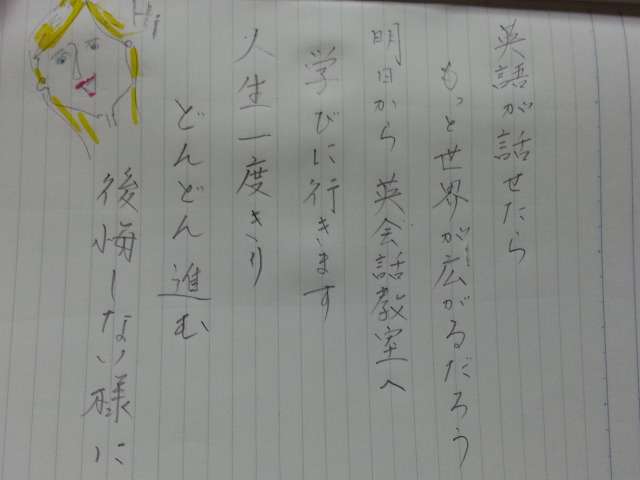 英語が話せたら
もっと世界が広がるだろう
明日から 英会話教室へ
学びに行きます
人生一度きり
どんどん進む
後悔しない様に
Hi